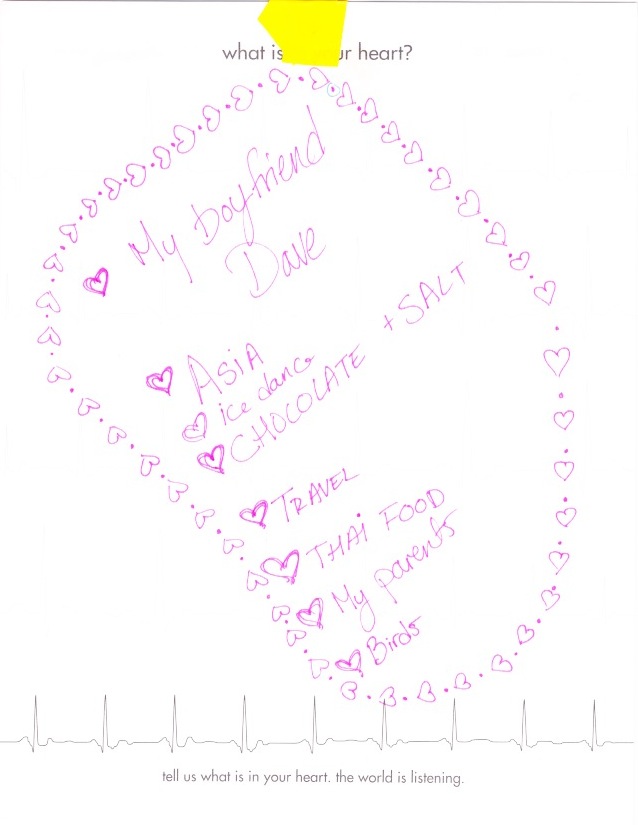 what is your heart?
My boyfriend
Dave
ASIA
ice dance
CHOCOLATE + SALT
TRAVEL
THAI FOOD
My parents
Birds
tell us what is in your heart. the world is listening.